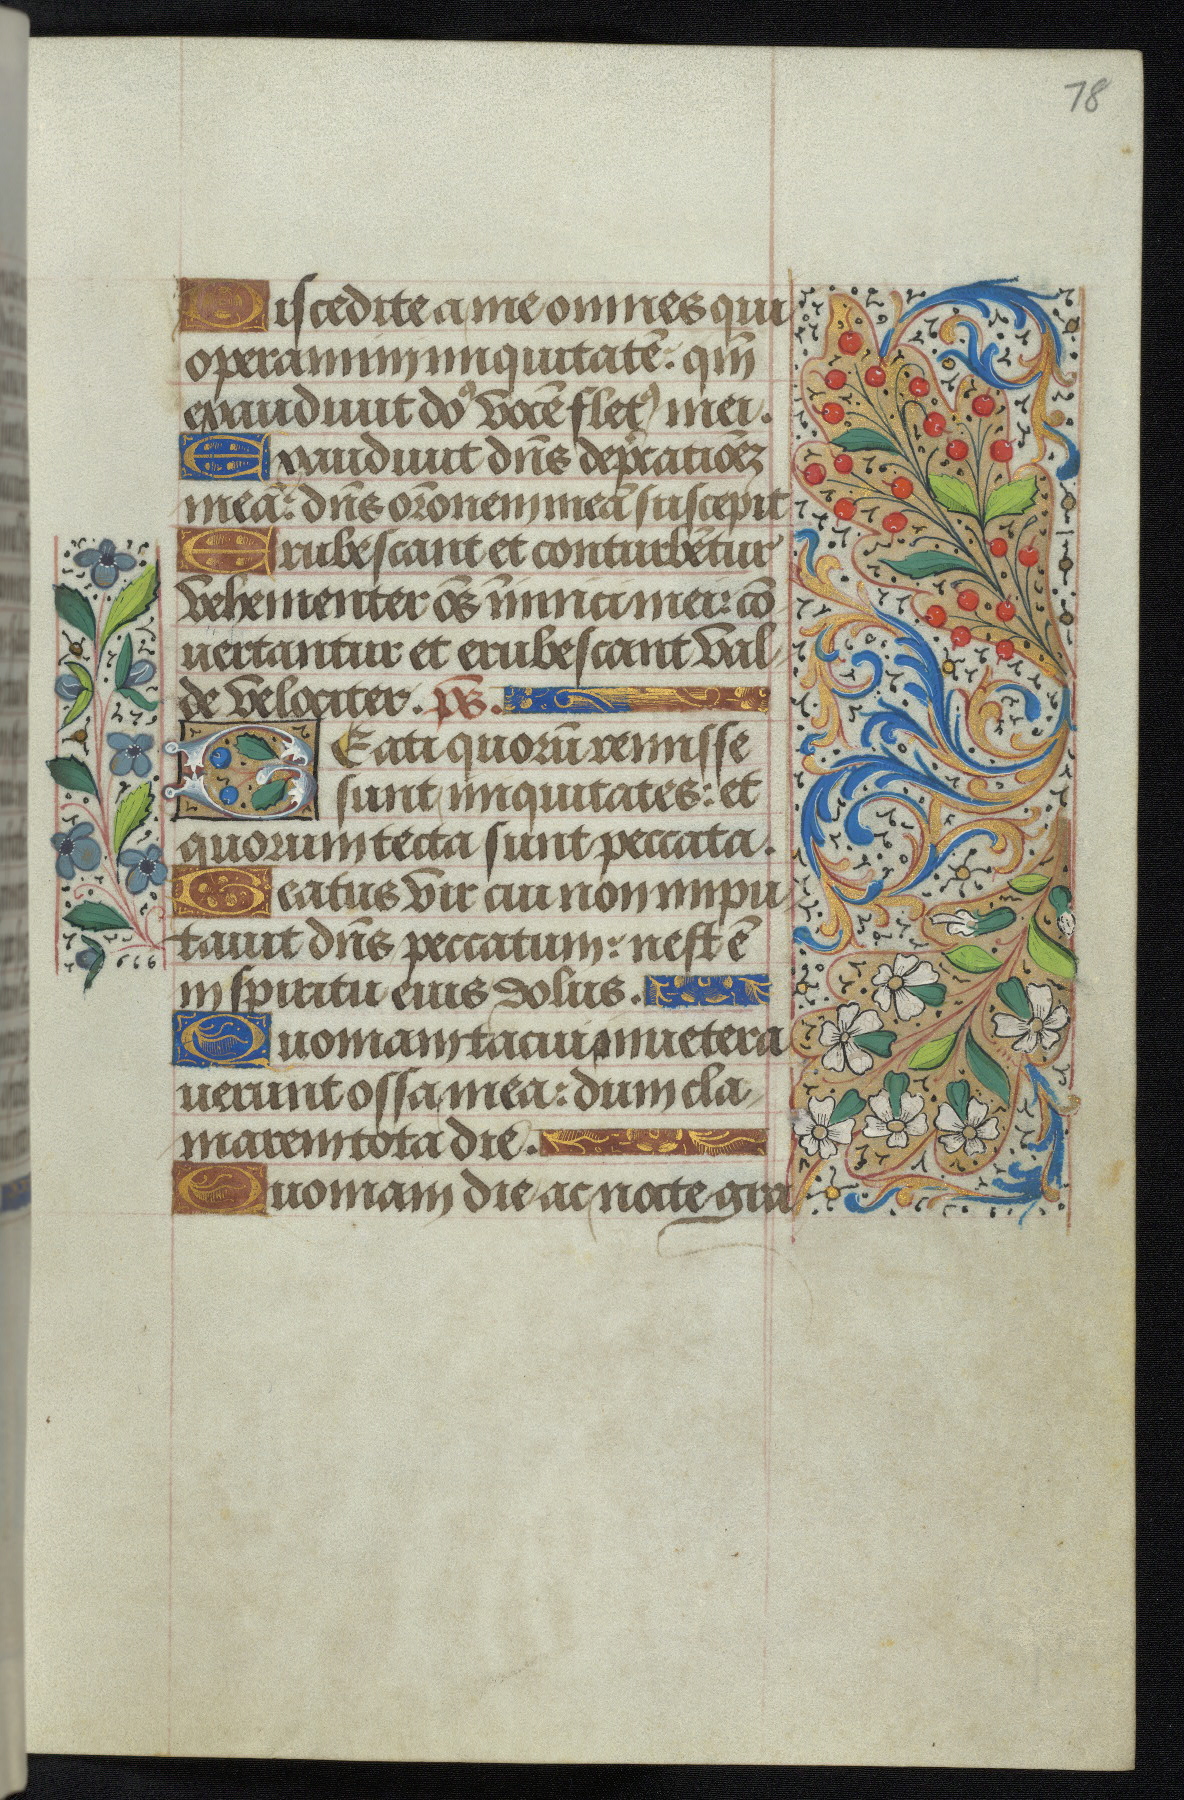 78
Discedite a me omnes qui
operamini iniquitatē: qm̄
exaudiuit dōs vocē fletꝰ mei.
Exaudiuit dn̄s dep̄catiōeꝫ
meā: dn̄s orōnem meā suscepit
Erubescant et conturbētur
vehementer oēs inimici mei: cō
uertantur et erubescant val
de velociter. ps̄.
BEati quorū remisse
sunt iniquitates: et
quorum tecta sunt peccata.
Beatus vir cui non impu
tauit dn̄s peccatum: nec est ē
in spiritu eius dolus.
Quoniam tacui inuetera
uerunt ossa mea: dum cla
marem tota die.
Quoniam die ac nocte gra